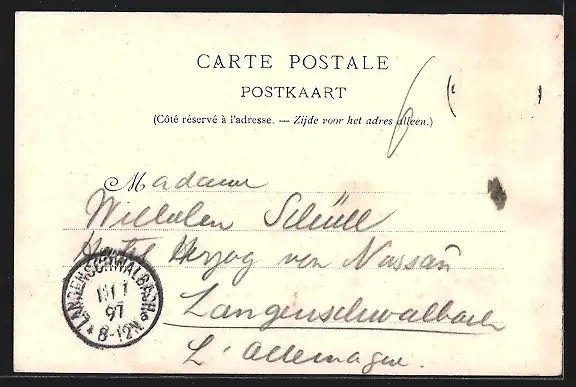 CARTE POSTALE
POSTKAART
(Côté réservé à l'adresse. — Zijde voor het adres alleen.)
Madame
Schüll
Hotel Herzog von Nassau
Langenschwalbach
L'Allemagne.
LANGENSCHWALBACH
97
8-12N